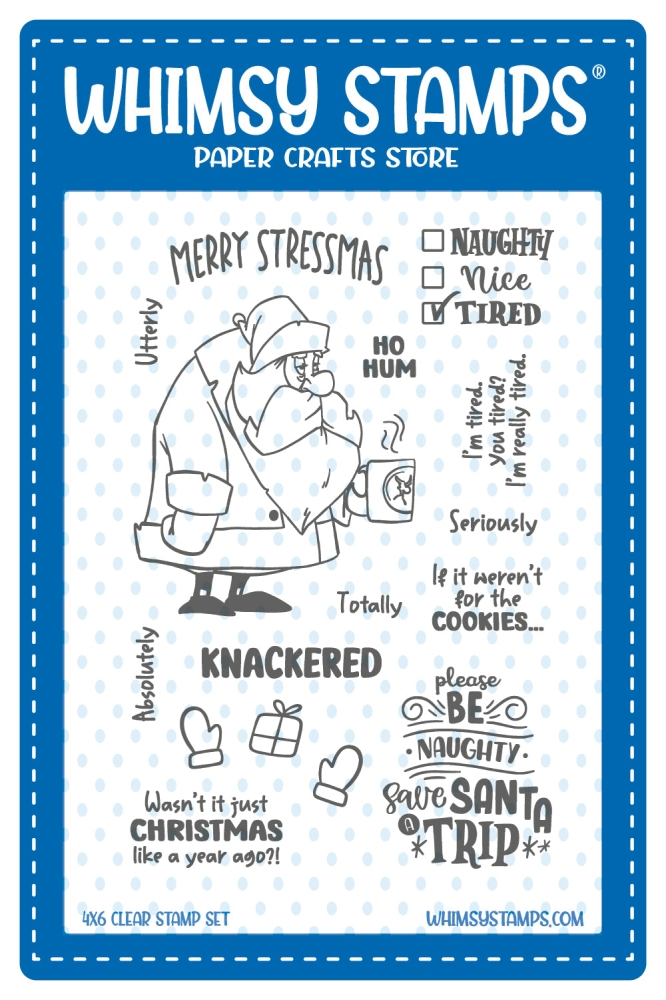 WHIMSY STAMPS®
PAPER CRAFTS STORE
MERRY STRESSMAS
NAUGHTY
Nice
TIRED
Utterly
HO
HUM
I'm tired.
You tired?
I'm really tired.
Seriously
If it weren't
for the
COOKIES...
Totally
Absolutely
KNACKERED
please
BE
·NAUGHTY·
save SANTA
A TRIP
Wasn't it just
CHRISTMAS
like a year ago?!
4X6 CLEAR STAMP SET
WHIMSYSTAMPS.COM